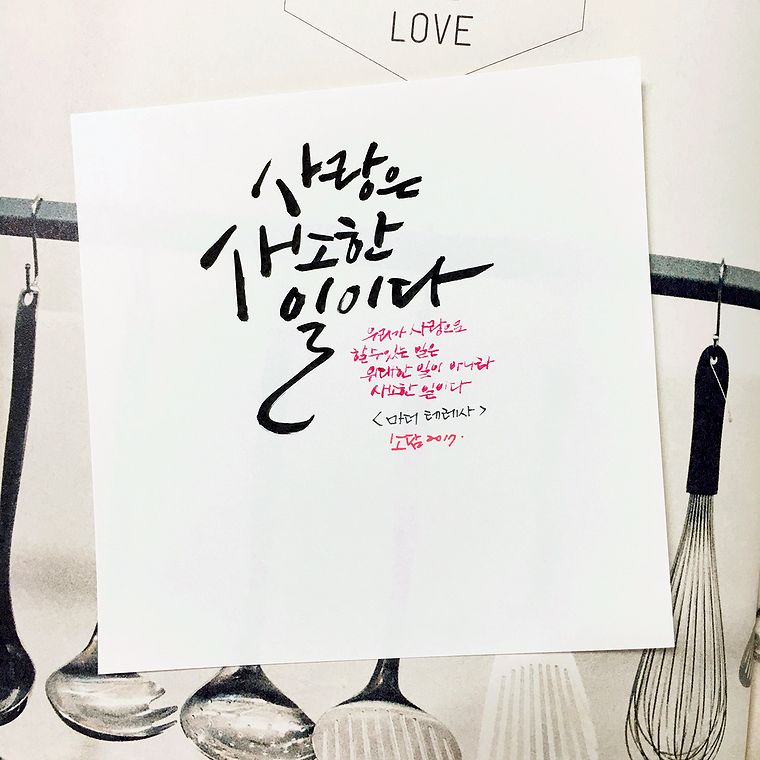 LOVE
사랑은
사소한
일이다
우리가 사랑으로
할 수 있는 일은
위대한 일이 아니라
사소한 일이다
<마더 테레사>
소담 2017.